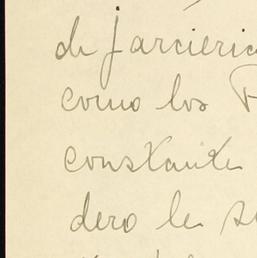 de jarcieric
como los
constante
dero le s